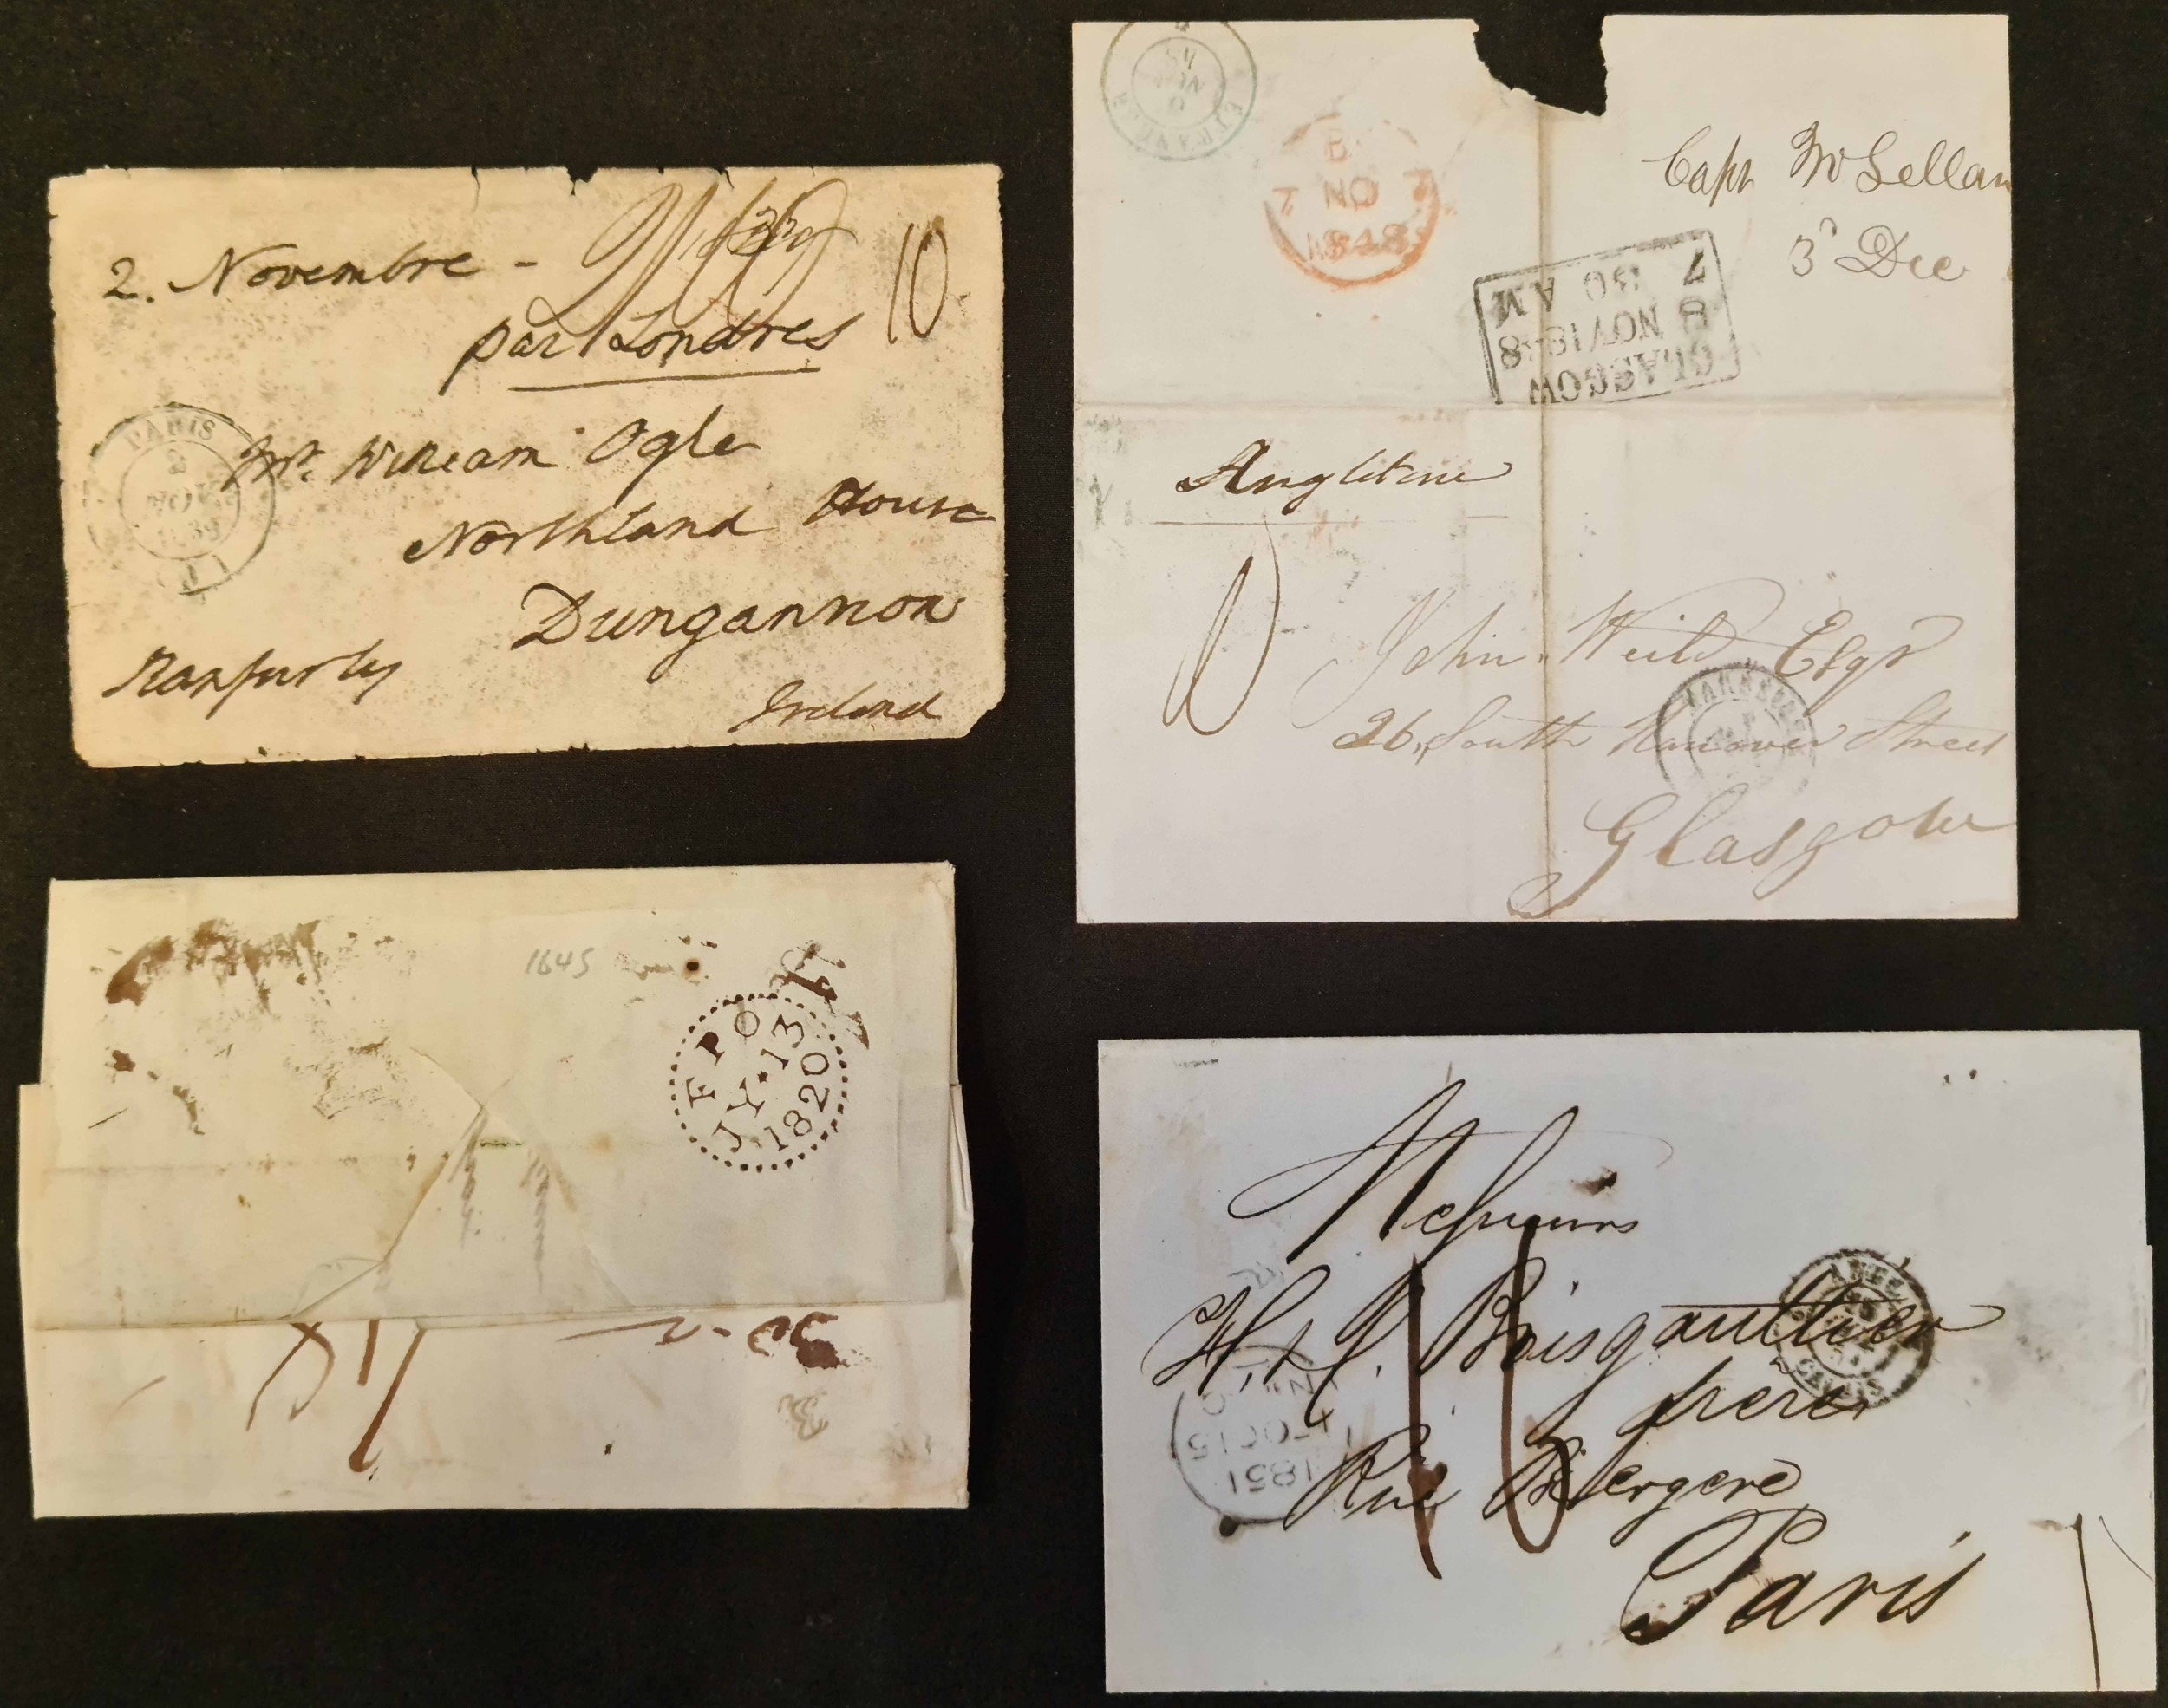 2. Novembre -
10
par Londres
PARIS
2
NOV
Mr. William Ogle
Northland House
Dungannon
Ranfurly
Ireland
B
7 NO 7
1848
Capt McLellan
3d Dec
GLASGOW
8 NOV 1848
7 30 AM
Angleterre
10
John Weild Esqr
26, South Hanover Street
Glasgow
1845
FPO
JY · 13
1820
Messieurs
H. & J. Boisgaultier
frères
Rue Bergere
Paris
OC 15
1851
CALAIS